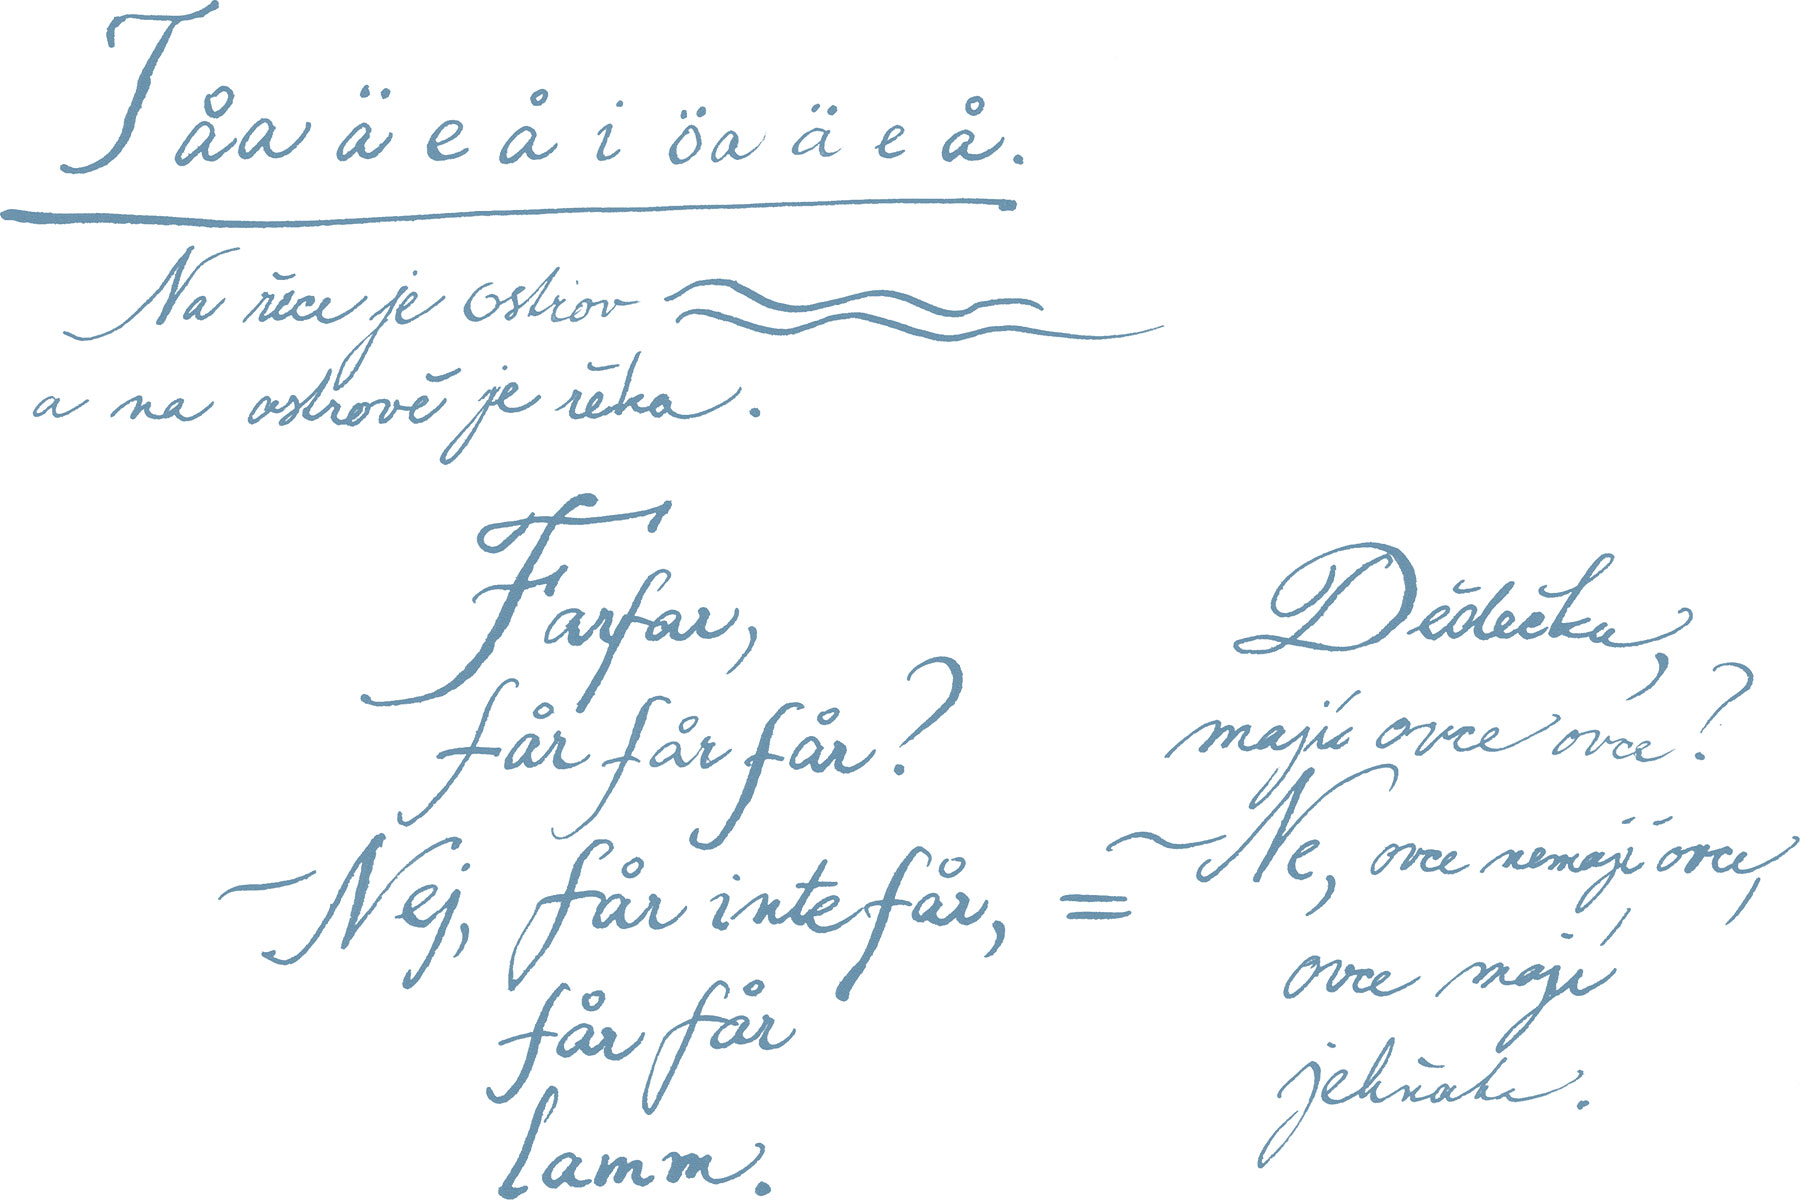 I åa ä e å i öa ä e å.
Na řece je ostrov
a na ostrově je řěka.
Farfar,
får får får?
~Nej, får inte får,
får får
lamm.
=
Dědečku,
mají ovce ovce?
~Ne, ovce nemají ovce,
ovce mají
jehňata.